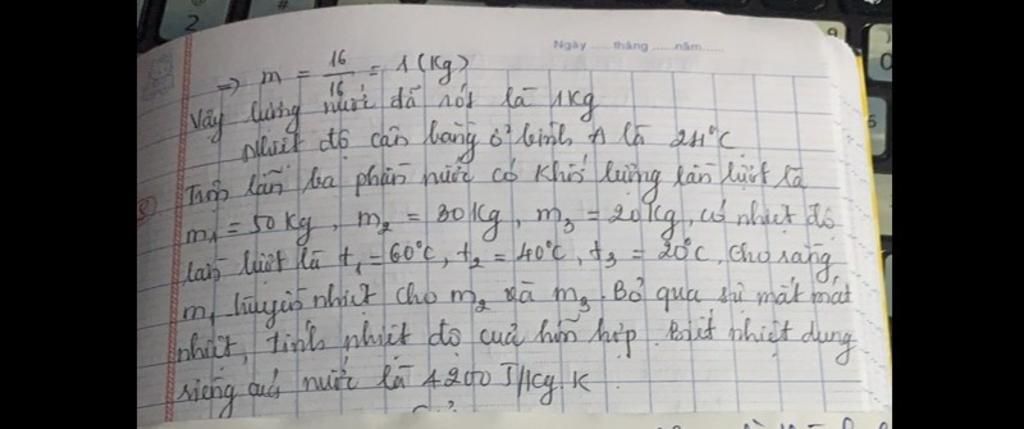 Ngày ..... tháng ..... năm .....
=> m = 16/16 = 1 (Kg)
Vậy lượng nước đã rót là 1Kg
Nhiệt độ cân bằng ở bình A là 24°C
Trộn lẫn ba phần nước có khối lượng lần lượt là
m₁ = 50 Kg, m₂ = 30 Kg, m₃ = 20 Kg, có nhiệt độ
lần lượt là t₁ = 60°C, t₂ = 40°C, t₃ = 20°C. Cho rằng
m₁ truyền nhiệt cho m₂ và m₃. Bỏ qua sự mất mát
nhiệt, tính nhiệt độ của hỗn hợp. Biết nhiệt dung
riêng của nước là 4200 J/Kg.K